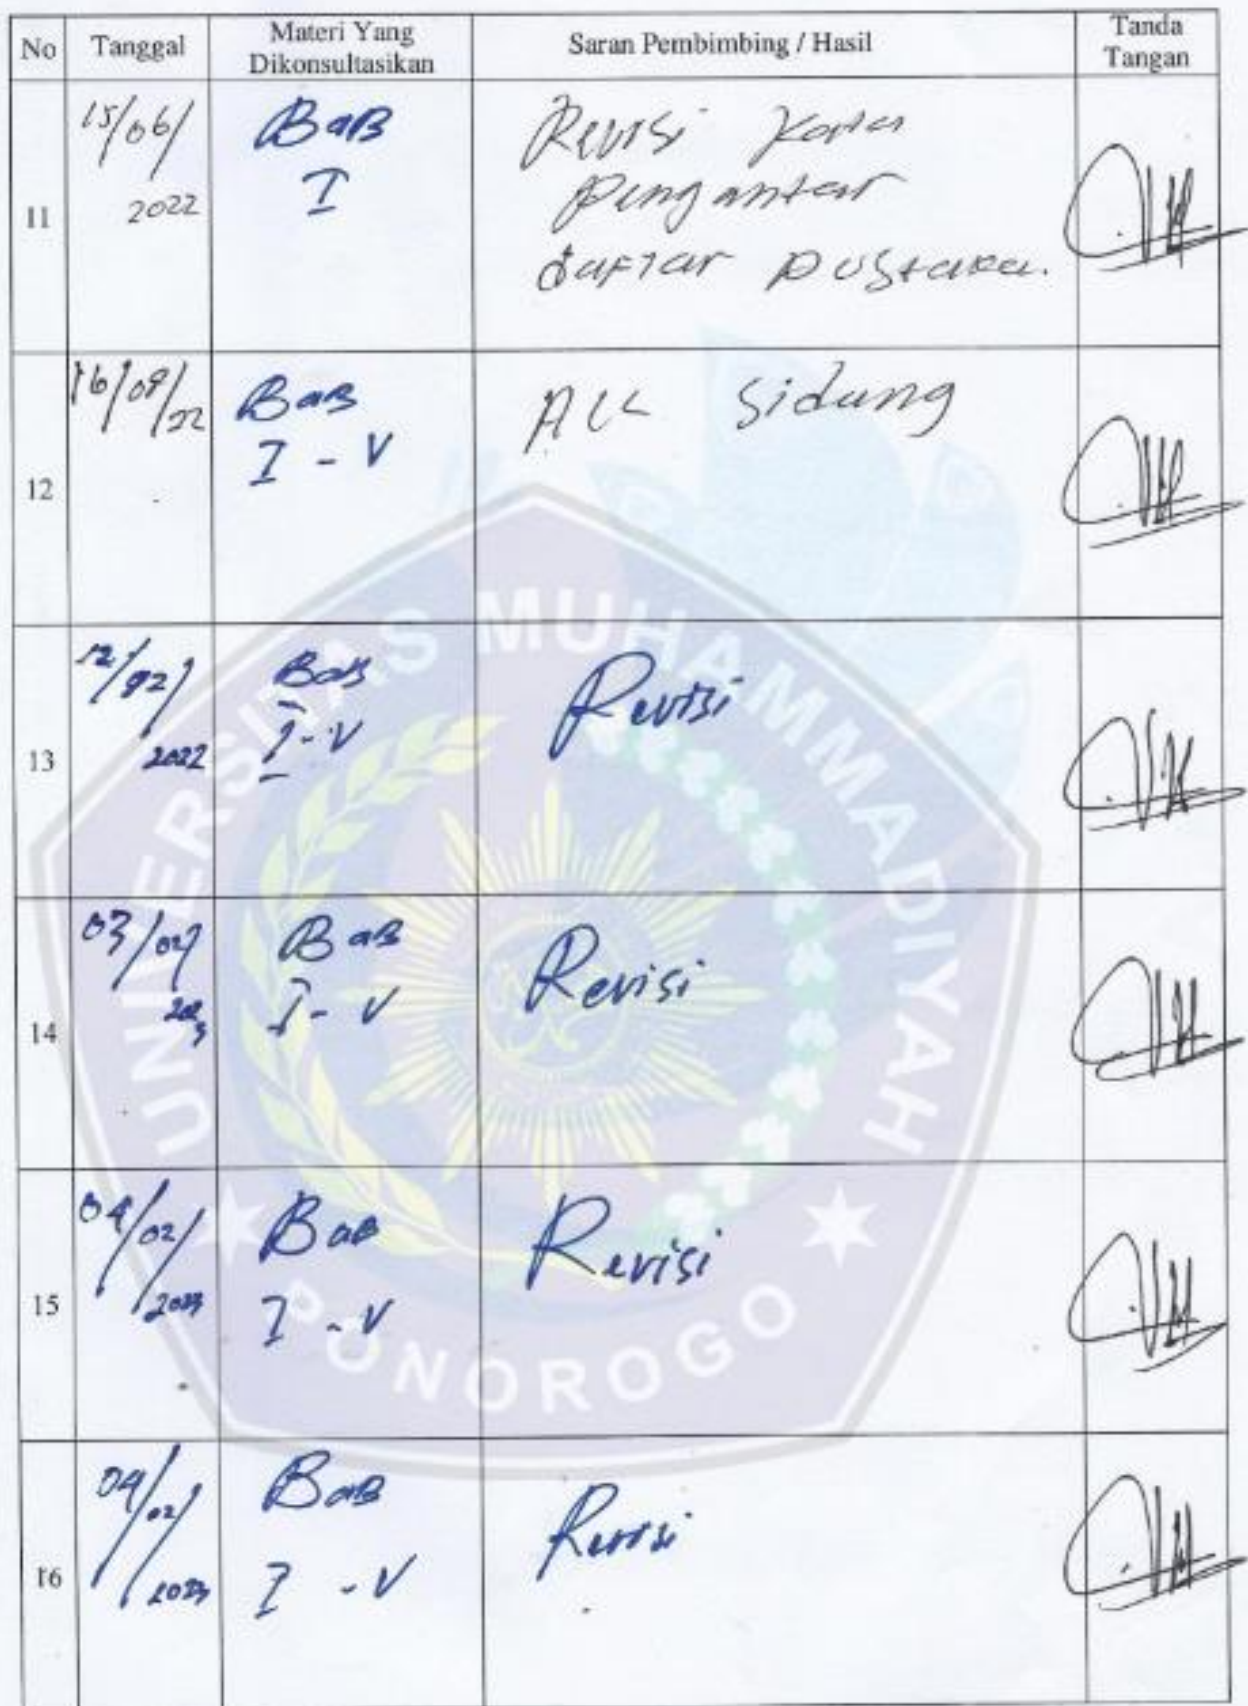 No Tanggal Materi Yang Dikonsultasikan Saran Pembimbing / Hasil Tanda Tangan
11 15/06/2022 BaB I Revisi Kata
Pengantar
daftar pustaka.
12 16/09/22 BaB I - V ACC Sidang
13 12/02/2022 BaB I - V Revisi
14 03/02/2023 BaB I - V Revisi
15 04/02/2023 BaB I - V Revisi
16 04/02/2023 BaB I - V Revisi
UNIVERSITAS MUHAMMADIYAH
PONOROGO